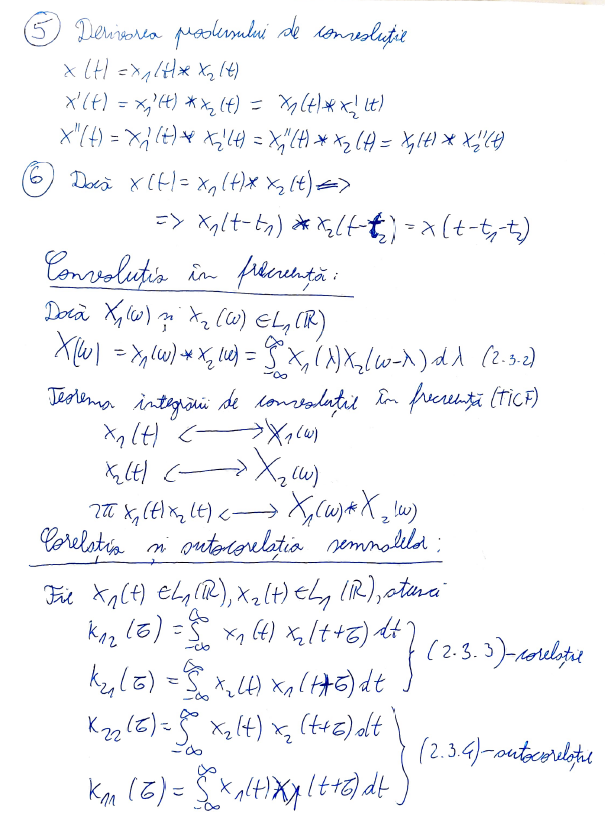 ⑤ Derivarea produsului de convoluție
x(t) = x₁(t) * x₂(t)
x'(t) = x₁'(t) * x₂(t) = x₁(t) * x₂'(t)
x''(t) = x₁'(t) * x₂'(t) = x₁''(t) * x₂(t) = x₁(t) * x₂''(t)
⑥ Dacă x(t) = x₁(t) * x₂(t) <=>
=> x₁(t-t₁) * x₂(t-t₂) = x(t-t₁-t₂)
Convoluția în frecvență:
Dacă X₁(ω) și X₂(ω) ∈ L₁(ℝ)
X(ω) = X₁(ω) * X₂(ω) = ∫_{-∞}^{∞} X₁(λ) X₂(ω-λ) dλ (2.3.2)
Teorema integrării de convoluție în frecvență (TICF)
x₁(t) <-> X₁(ω)
x₂(t) <-> X₂(ω)
2π x₁(t) x₂(t) <-> X₁(ω) * X₂(ω)
Corelația și autocorelația semnalelor:
Fie x₁(t) ∈ L₁(ℝ), x₂(t) ∈ L₁(ℝ), atunci
k₁₂(τ) = ∫_{-∞}^{∞} x₁(t) x₂(t+τ) dt
k₂₁(τ) = ∫_{-∞}^{∞} x₂(t) x₁(t+τ) dt } (2.3.3)-corelație
k₂₂(τ) = ∫_{-∞}^{∞} x₂(t) x₂(t+τ) dt
k₁₁(τ) = ∫_{-∞}^{∞} x₁(t) x₁(t+τ) dt } (2.3.4)-autocorelație